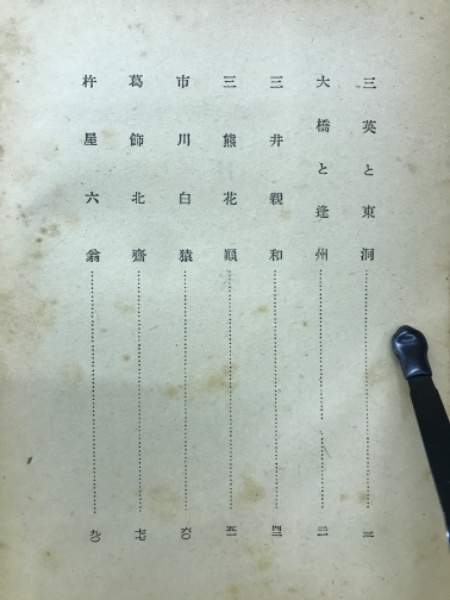 三英と東洞……三
大橋と逢州……二二
三井親和……四二
三熊花顚……五一
市川白猿……六〇
葛飾北齋……七七
杵屋六翁……九〇